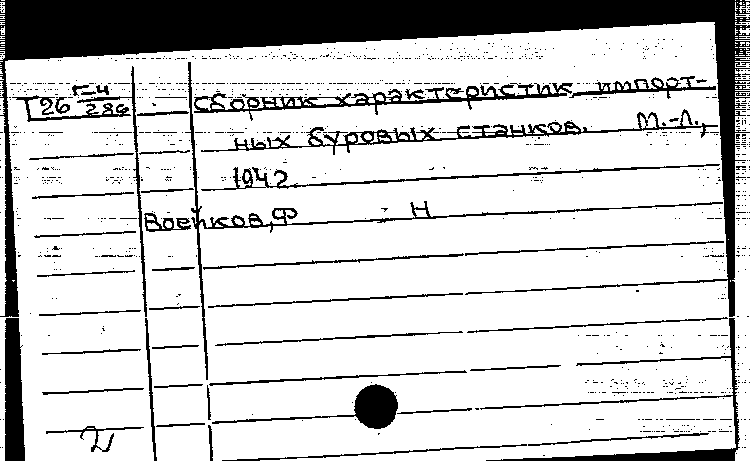 Т26 Г-4/286
Сборник характеристик импорт-
ных буровых станков. М.-Л.,
1942.
Воейков, Ф Н